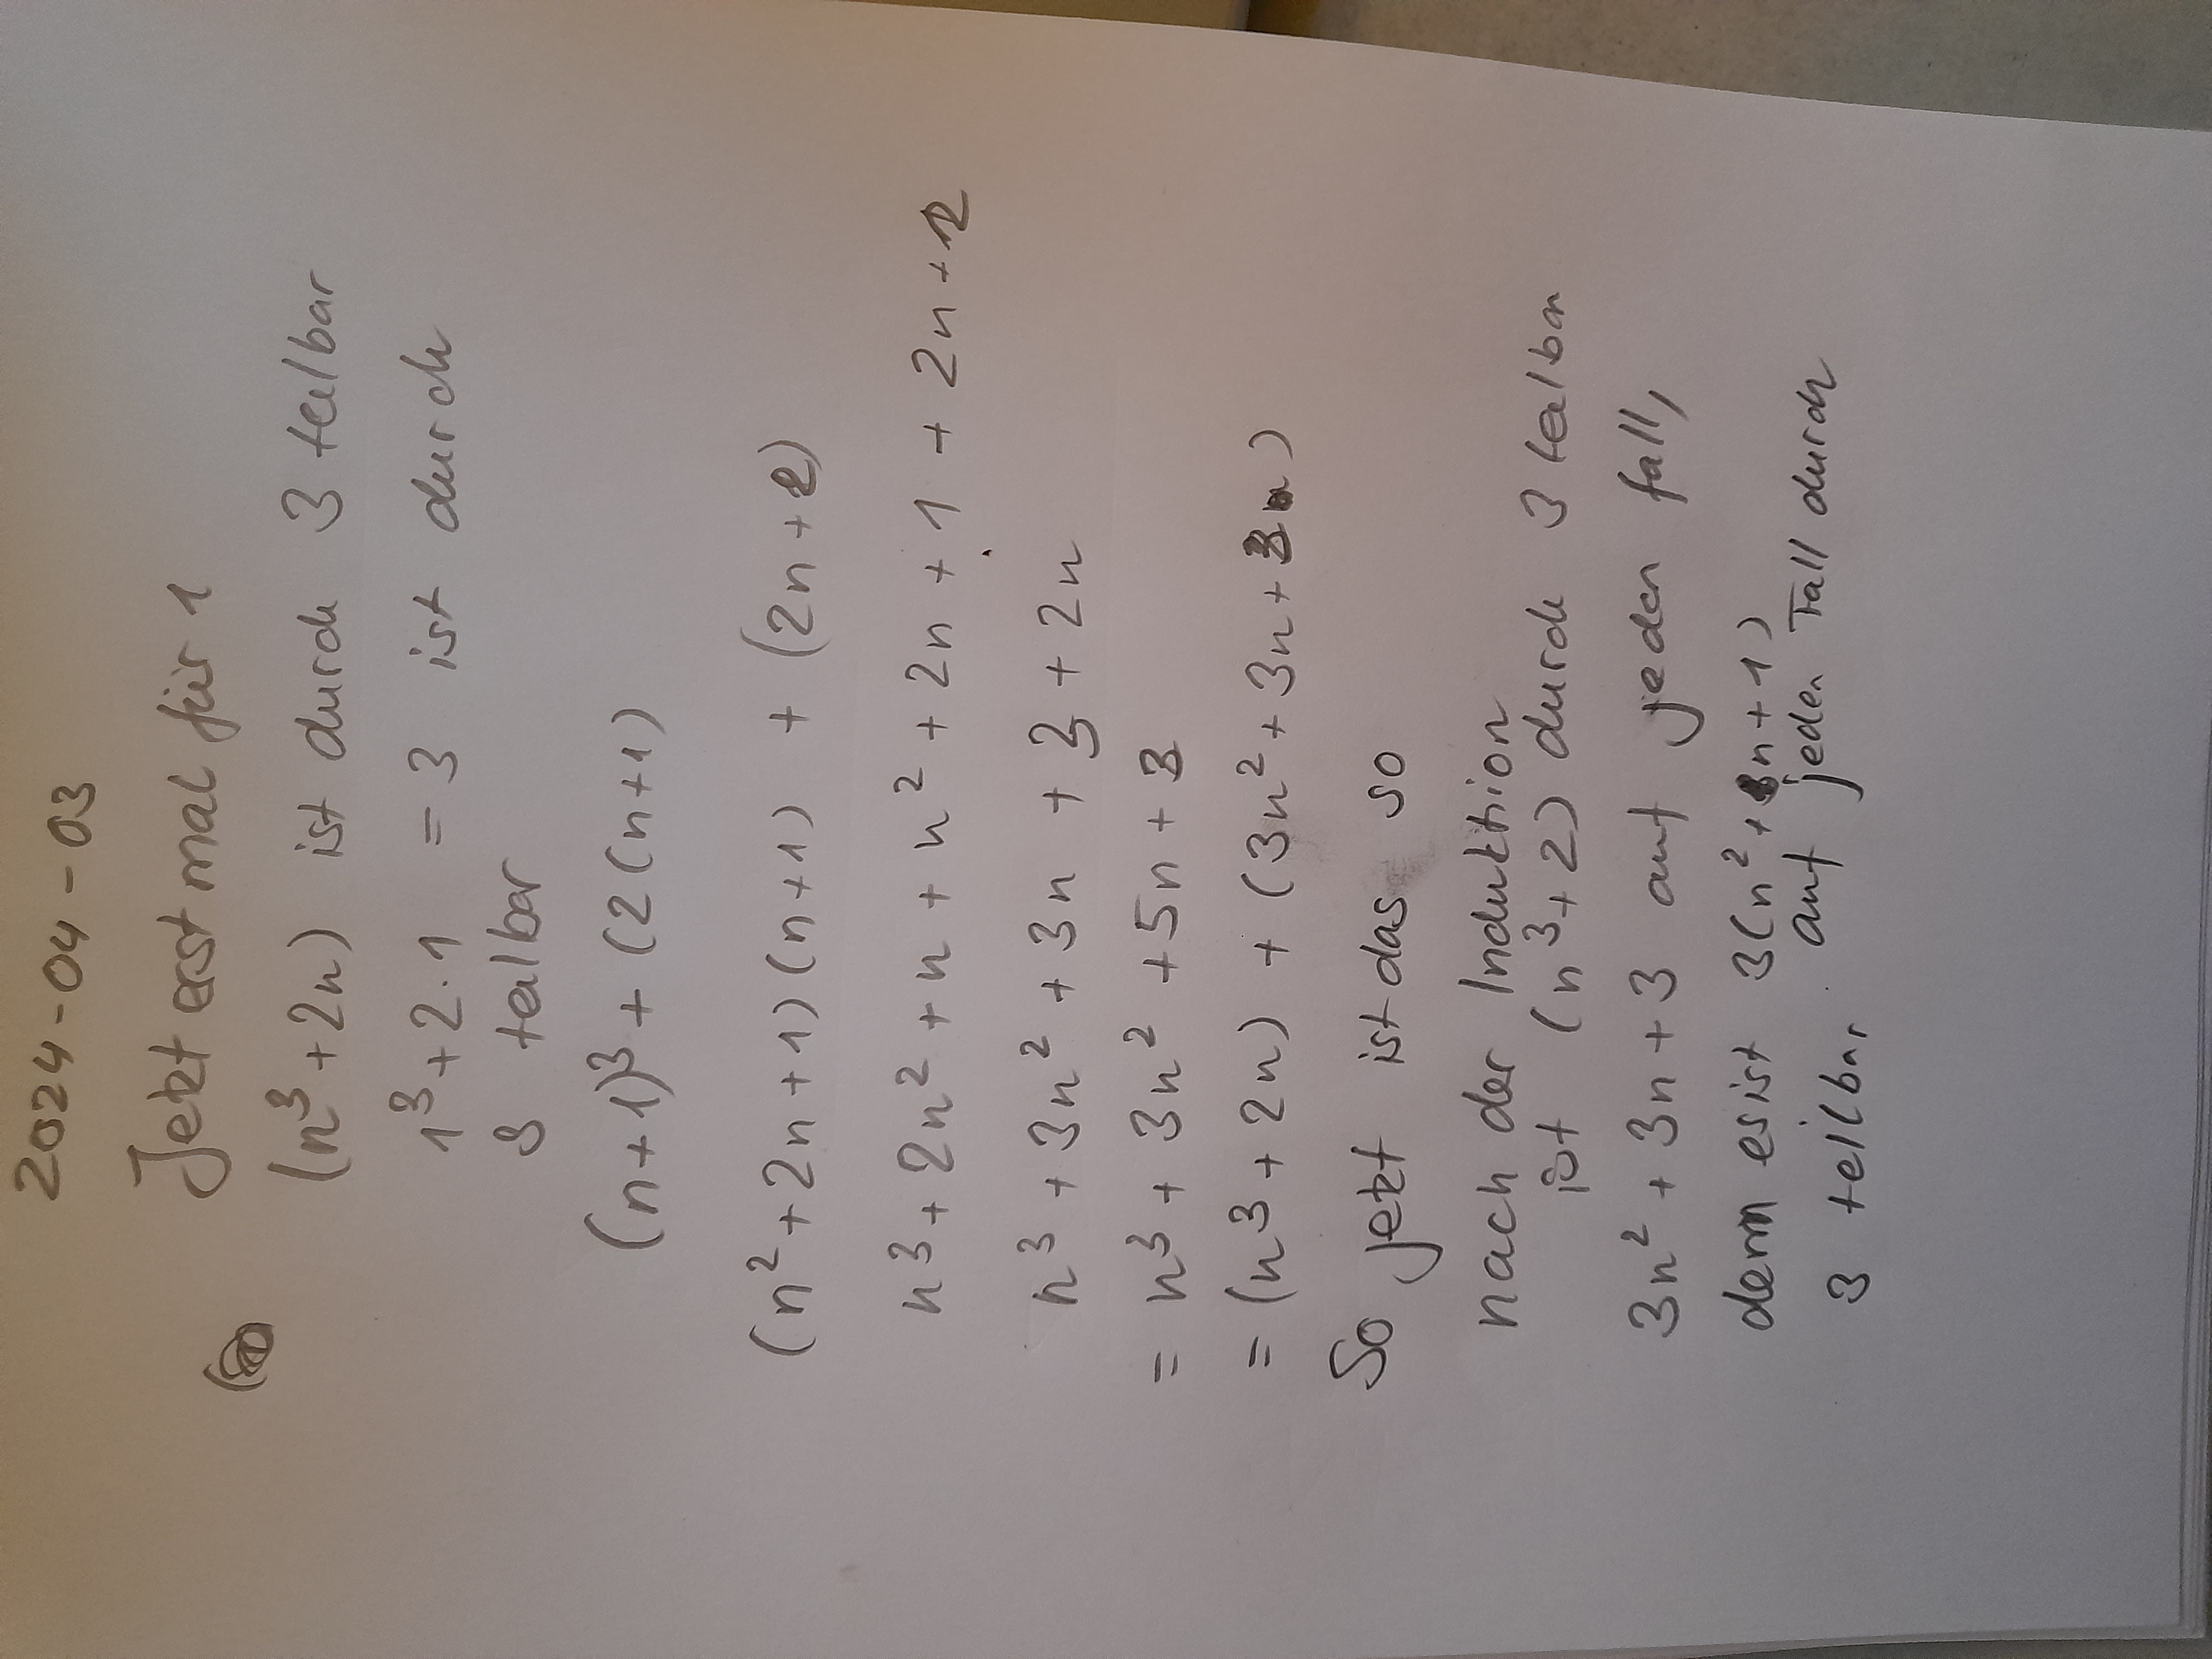 2024-04-03
Jetzt erst mal für 1
(n³+2n) ist durch 3 teilbar
1³+2·1 = 3 ist durch
3 teilbar
(n+1)³ + (2(n+1)
(n²+2n+1)(n+1) + (2n+2)
n³+2n²+n+n²+2n+1+2n+2
n³+3n²+3n+3+2n
= n³+3n²+5n+3
= (n³+2n) + (3n²+3n+3)
So jetzt ist das so
nach der Induktion
ist (n³+2) durch 3 teilbar
3n²+3n+3 auf jeden fall,
denn es ist 3(n²+n+1)
auf jeden Fall durch
3 teilbar.